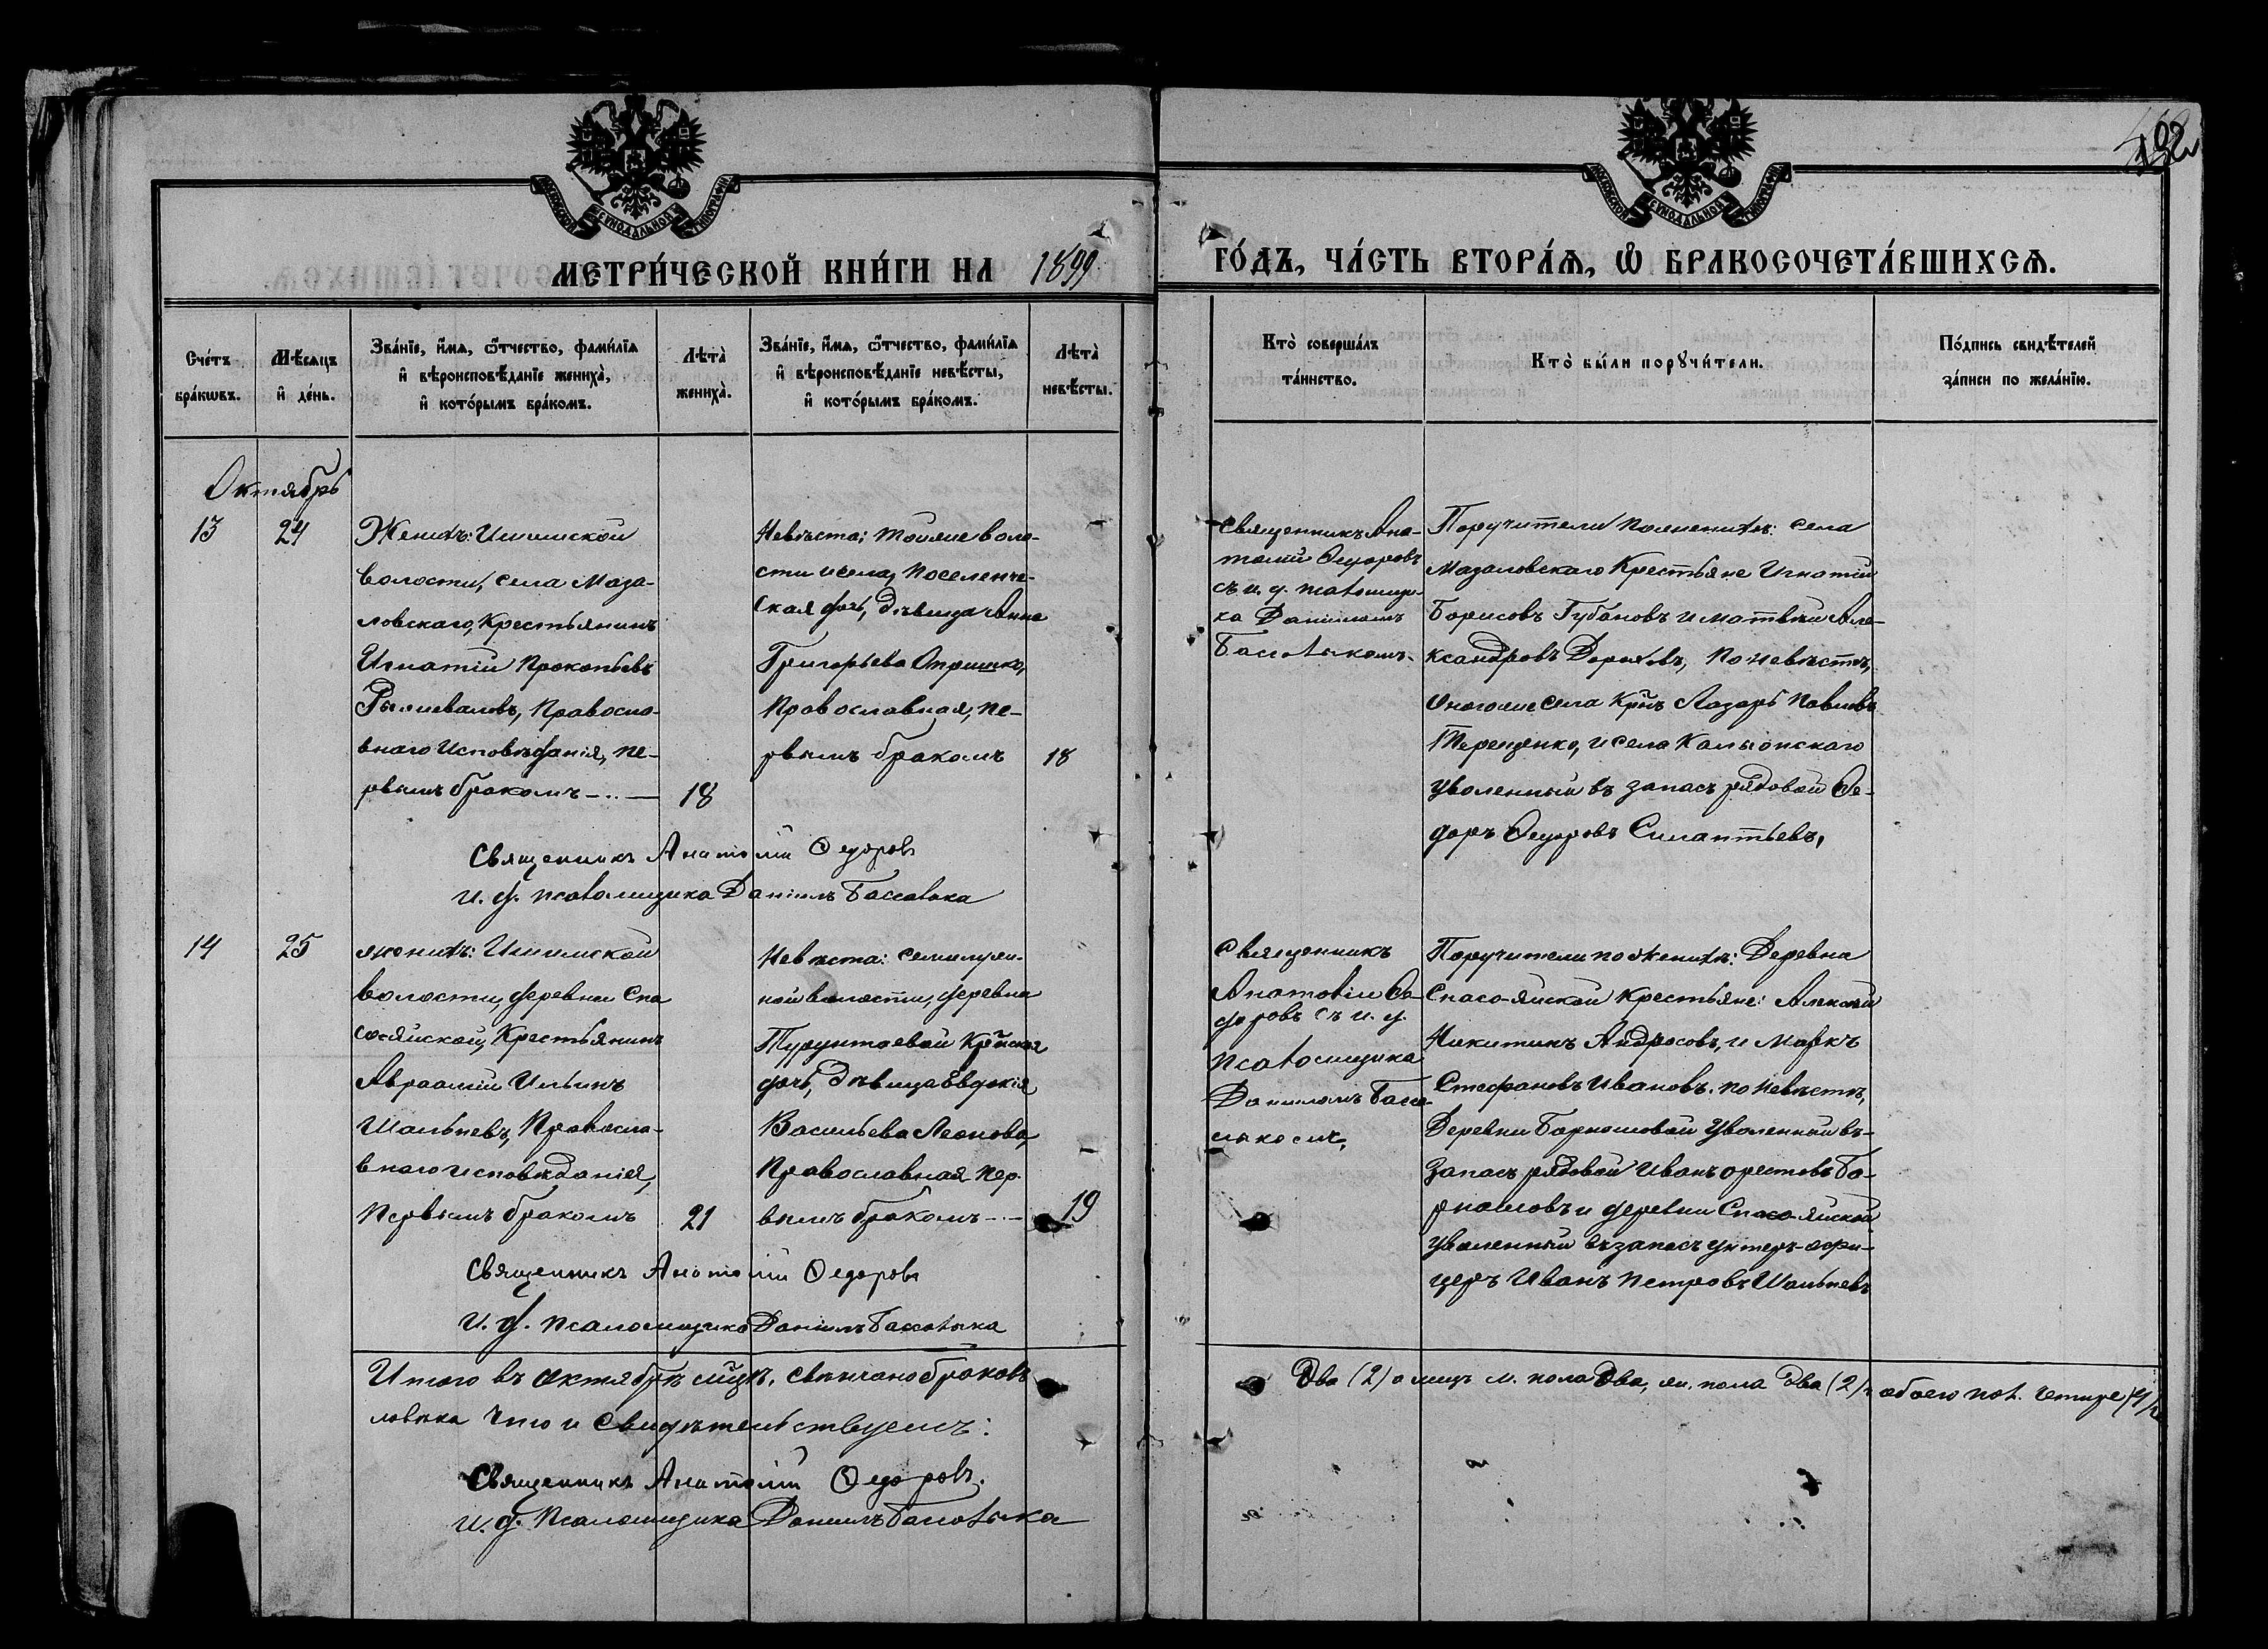 192
МОСКОВСКОЙ СѴНОДАЛЬНОЙ ТИПОГРАФІИ
МОСКОВСКОЙ СѴНОДАЛЬНОЙ ТИПОГРАФІИ
МЕТРИ́ЧЕСКОЙ КНИ́ГИ НА 1899
ГО́ДЪ, ЧА́СТЬ ВТОРА́Я, Ѡ БРАКОСОЧЕТА́ВШИХСЯ.
Сче́тъ
бра́кѡвъ.
Мѣ́сяцъ
и҆ де́нь.
Зва́нїе, и҆́мя, ѻ҆́тчество, фами́лїя
и҆ вѣроисповѣ́данїе жениха̀,
и҆ кото́рымъ бра́комъ.
Лѣта̀
жениха̀.
Зва́нїе, и҆́мя, ѻ҆́тчество, фами́лїя
и҆ вѣроисповѣ́данїе невѣ́сты,
и҆ кото́рымъ бра́комъ.
Лѣта̀
невѣ́сты.
Кто̀ соверша́лъ
та́инство.
Кто̀ бы́ли порꙋчи́тели.
По́дпись свидѣ́телей
за́писи по жела́нїю.
Октябрь
13
24
Женихъ: Ишимской
волости, села Маза-
ловскаго, Крестьянинъ
Игнатій Прокопьевъ
Рыжеваловъ, Правосла-
внаго Исповѣданія, пе-
рвымъ бракомъ
18
Невѣста: тойже воло-
сти и села, поселенче-
ская дочь, дѣвица Анна
Григорьева Опришко,
Православная, пе-
рвымъ бракомъ
18
Священникъ Ана-
толій Ѳедоровъ
съ и. д. псаломщи-
ка Даніиломъ
Поручители по женихѣ: села
Мазаловскаго Крестьяне Игнатій
Борисовъ Губановъ и Матвѣй Але-
ксандровъ Дороховъ, по невѣстѣ,
оногоже села Кр-нъ Лазарь Павловъ
Терещенко, и села
уволенный въ запасъ рядовой Ѳе-
доръ Ѳедоровъ Силантьевъ,
Священникъ Анатолій Ѳедоровъ
и. д. псаломщика Даніилъ
14
25
женихъ: Ишимской
волости, деревни Спа
сояйской, Крестьянинъ
Авраамій Ильинъ
Шальневъ, Правосла-
внаго исповѣданія,
Первымъ бракомъ
21
Невѣста: Семилуж-
ной волости, деревни
Турунтаевой Кр-нская
дочь, дѣвица Евдокія
Васильева Леонова,
Православная, пер-
вымъ бракомъ
19
Священникъ
Анатолій Ѳе-
доровъ съ и. д.
псаломщика
Даніиломъ
Поручители по женихѣ: Деревни
Спасо-яйской крестьяне: Алексѣй
Никитинъ Андросовъ, и Маркъ
Стефановъ Ивановъ. по невѣстѣ,
Деревни Барнашовой уволенный въ-
запасъ рядовой Иванъ Орестовъ Ба-
рнашовъ и деревни Спасо-яйской
уволенный въ запасъ унтеръ-офи-
церъ Иванъ Петровъ Шальневъ
Священникъ Анатолій Ѳедоровъ
И. д. псаломщика Даніилъ
Итого въ октябрѣ м-цѣ, свѣнчано браковъ
Два (2) м. пола два, жен. пола два (2) обоего пол. четыре (4)
Что и свидѣтельствуемъ:
Священникъ Анатолій Ѳедоровъ.
И. д. Псаломщика Даніилъ